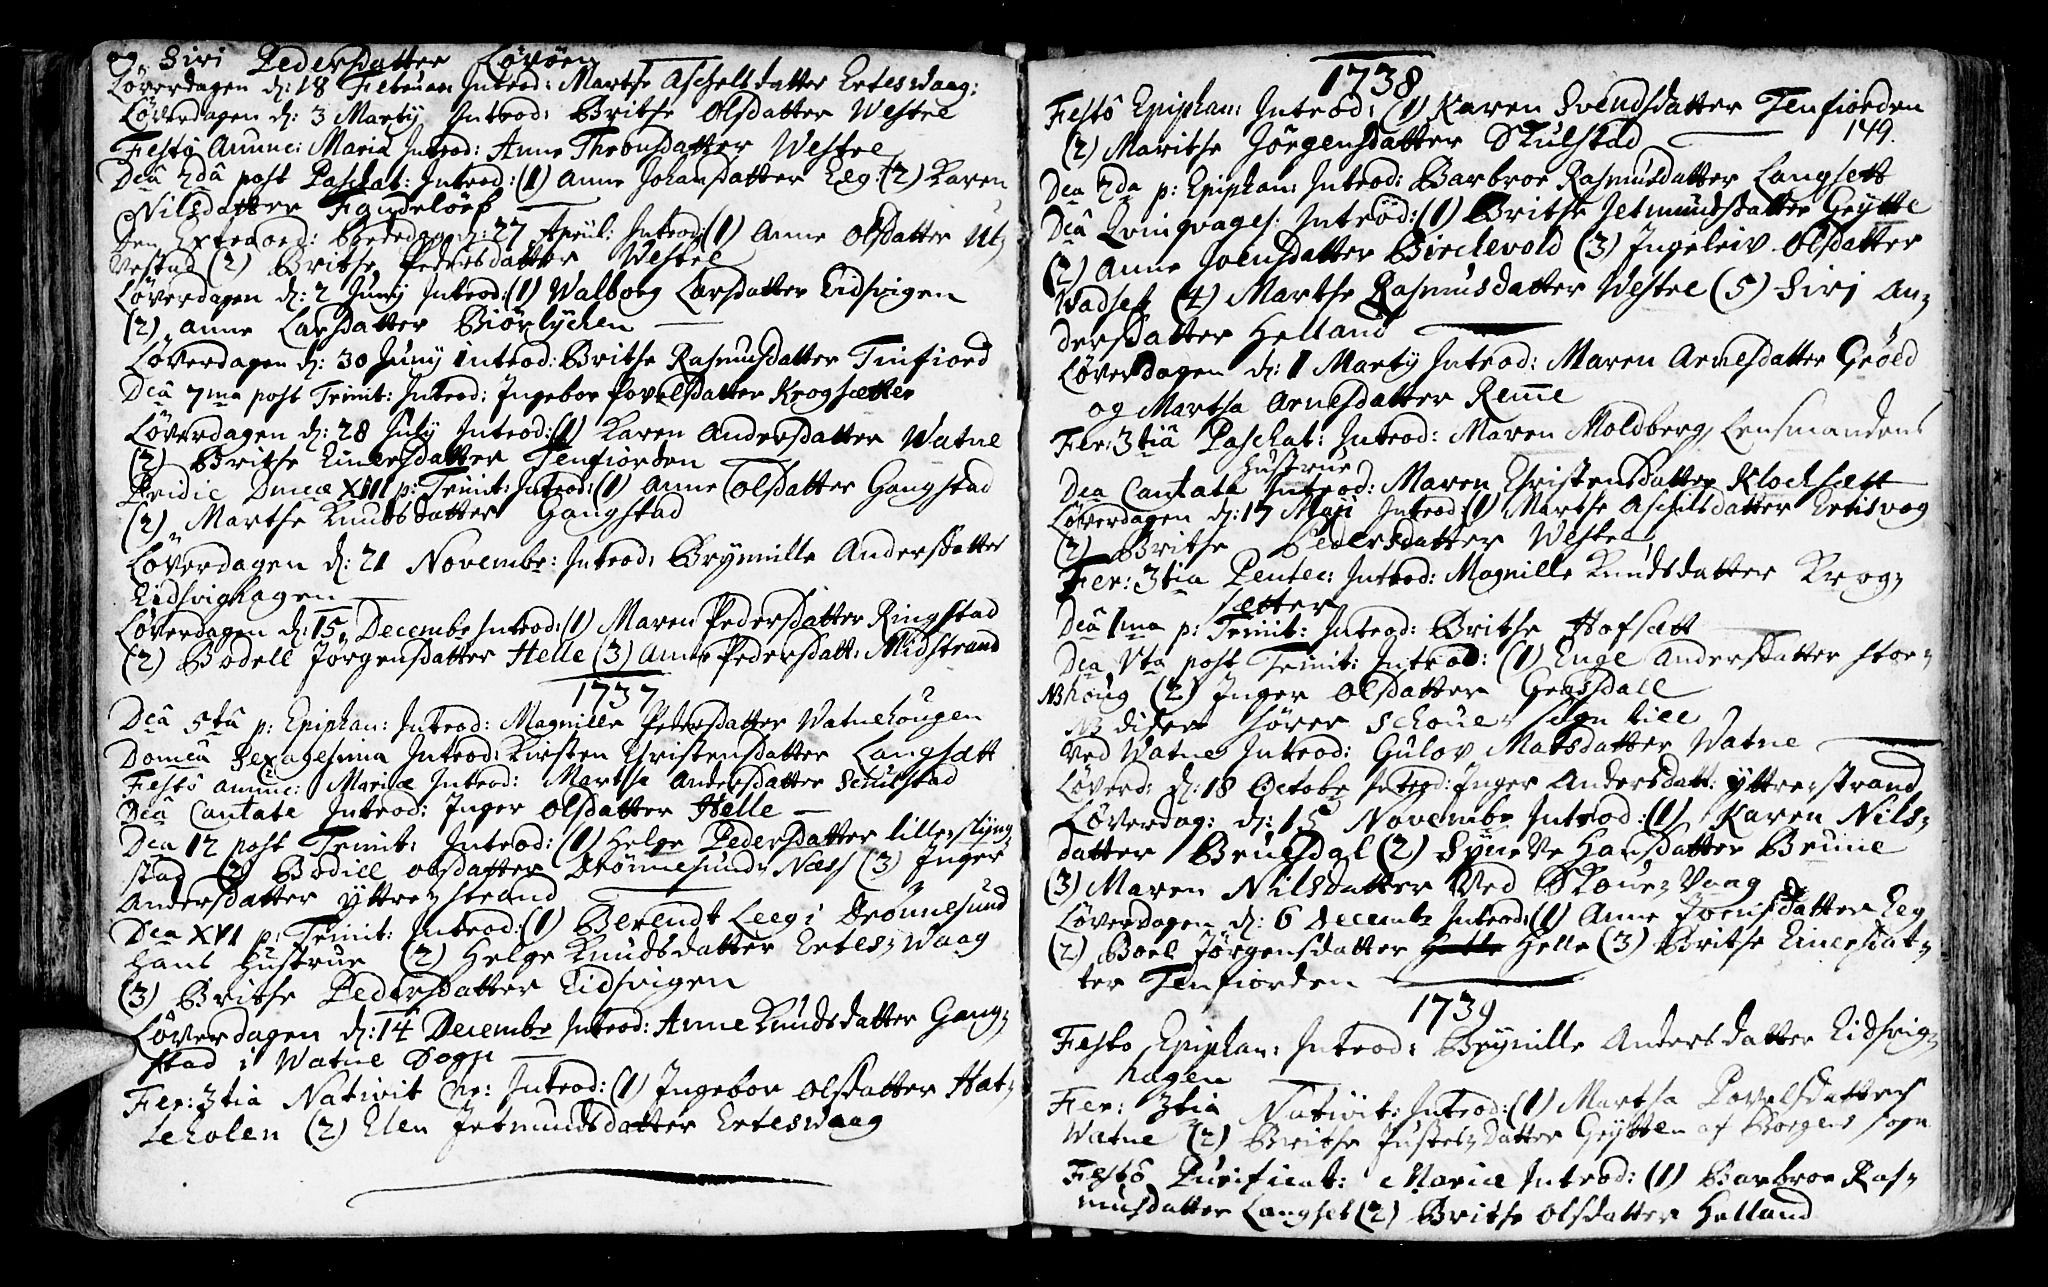 2, Siri Pedersdatter Lövöen
Löverdagen d: 18 Februar: Introd: Marthe Aschelsdatter Erteswaag:
Löverdagen d: 3 Martij Introd: Brithe Olsdatter Westre
Festô Annunc: Mariæ Introd: Anne Thronsdatter Westre
Dcâ 2dâ post Paschat: Introd: (1) Anne Johansdatter Eeg: (2) Karen
Nilsdatter
Den Extraord: Bededag d: 27 April: Introd: (1) Anne Olsdatter Ut-
vestad (2) Brithe Pedersdatter Westre
Löverdagen d: 2 Junij Introd: (1) Walborg Larsdatter Eidsvigen
(2) Anne Larsdatter Biörlychen
Löverdagen d: 30 Junij Introd: Brithe Rasmusdatter Tinfiord
Dcâ 7ma post Trinit: Introd: Ingebor Povelsdatter Krogsætter
Löverdagen d: 28 July Introd: (1) Karen Andersdatter Watne
(2) Brithe Einersdatter Tenfiorden
Pridie Dnicæ XIII p: Trinit: Introd: (1) Anne Olsdatter Gangstad
(2) Marthe Knudsdatter Gangstad
Löverdagen d: 21 Novembr: Introd: Brynnille Andersdatter
Eidsvighagen
Löverdagen d: 15 Decembr Introd: (1) Maren Pedersdatter Ringstad
(2) Bodell Jørgensdatter Helle (3) Anne Pedersdatt: Midstrand
1737
Dcâ 5tâ p: Epiphan: Introd: Magnille Pedersdatter Watnehougen
Domcâ Sexagesima Introd: Kirsten Christensdatter Langsætt
Festô Annunc: Mariæ Introd: Martha Andersdatter Schulstad
Dcâ Cantate Introd: Inger Olsdatter Helle
Dca 12 post Trinit: Introd: (1) Helge Pedersdatter lille-slyng-
stad (2) Bodill Olsdatter Drönnesund-Næss (3) Inger
Andersdatter yttre-strand
Dca XVI p: Trinit: Introd: (1) Berendt Leegi Drönnesund
Hans Hustrue (2) Helge Knudsdatter Ertes-Waag
(3) Brithe Pedersdatter Eidsvigen
Löverdagen d: 14 Decembr Introd: Anne Knudsdatter Gang-
stad i Watne Sogn
Fer: 3tia Nativit Chr: Introd: (1) Ingebor Olsdatter Hat-
leholen (2) Elen Jetmundsdatter Erteswaag
1738
149.
Festô Epiphan: Introd: (1) Karen Svendsdatter Tenfiorden
(2) Marithe Jörgensdatter Skulstad
Dca 2da p: Epiphan: Introd: Barbroe Rasmusdatter Langsett
Dcâ Qvinqvages: Introd: (1) Brithe Jetmundsdatter Grytte
(2) Anne Joensdatter Birchevold (3) Ingeleiv Olsdatter
Wadset (4) Marthe Rasmusdatter Westre (5) Siri An-
dersdatter Helland
Löverdagen d: 1 Martij Introd: Maren Arnesdatter Gröld
og Martha Arnesdatter Remme
Fer: 3tiâ Paschat: Introd: Maren Moldberg, Lensmandens
Hustrue
Dca Cantate Introd: Maren Christensdatter Klocksætt
Löverdagen d: 17 Maji Introd: (1) Marthe Aschilsdatter Ertisvog
(2) Brithe Pedersdatter Westre
Fer: 3tia Pentec: Introd: Magnille Knudsdatter Krog-
sætter
Dcâ 1ma p: Trinit: Introd: Brithe Hofsætt
Dca Vta post Trinit: Introd: (1) Enge Andersdatter stor-
NB houg (2) Inger Olsdatter
NB disse hörer Schoue-sogn till
Ved Watne Introd: Gulov Matsdatter Watne
Löverd: d: 18 Octobr Introd: Inger Andersdatt: yttre-strand
Löverdag: d: 15 Novembr Introd: (1) Karen Nils-
datter Bruesdal (2) Synneve Hansdatter Brune
(3) Maren Nilsdatter Ved Skoue-Vaag
Löverdagen d: 6 Decembr Introd: (1) Anne Joensdatter Eeg
(2) Boel Jørgensdatter Helle Helle (3) Brithe Einersdat-
ter Tenfiorden
1739
Festo Epiphan: Introd: Brynille Andersdatter Eidsvig-
hagen
Fer: 3tia Nativit: Introd: (1) Martha Povelsdatter
Watne (2) Brithe Justes-datter Grytten af Borgens sogn
Festô Purificat: Mariæ Introd: (1) Barbroe Ras-
musdatter Langset (2) Brithe Olsdatter Helland